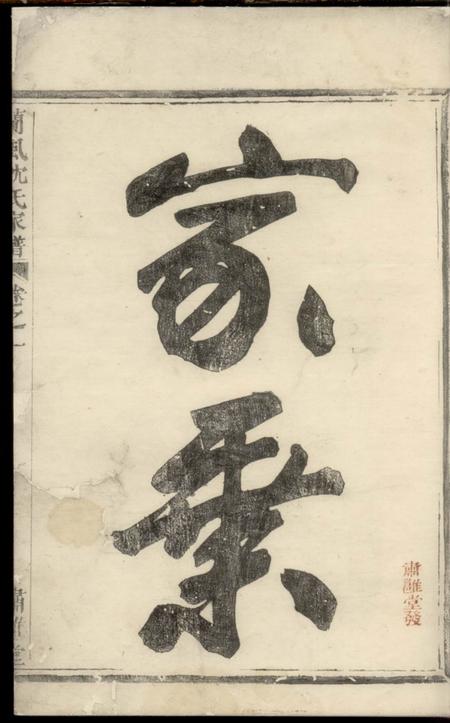 肅雝堂發
家乘
蘭風沈氏家譜 卷之一 肅雝堂